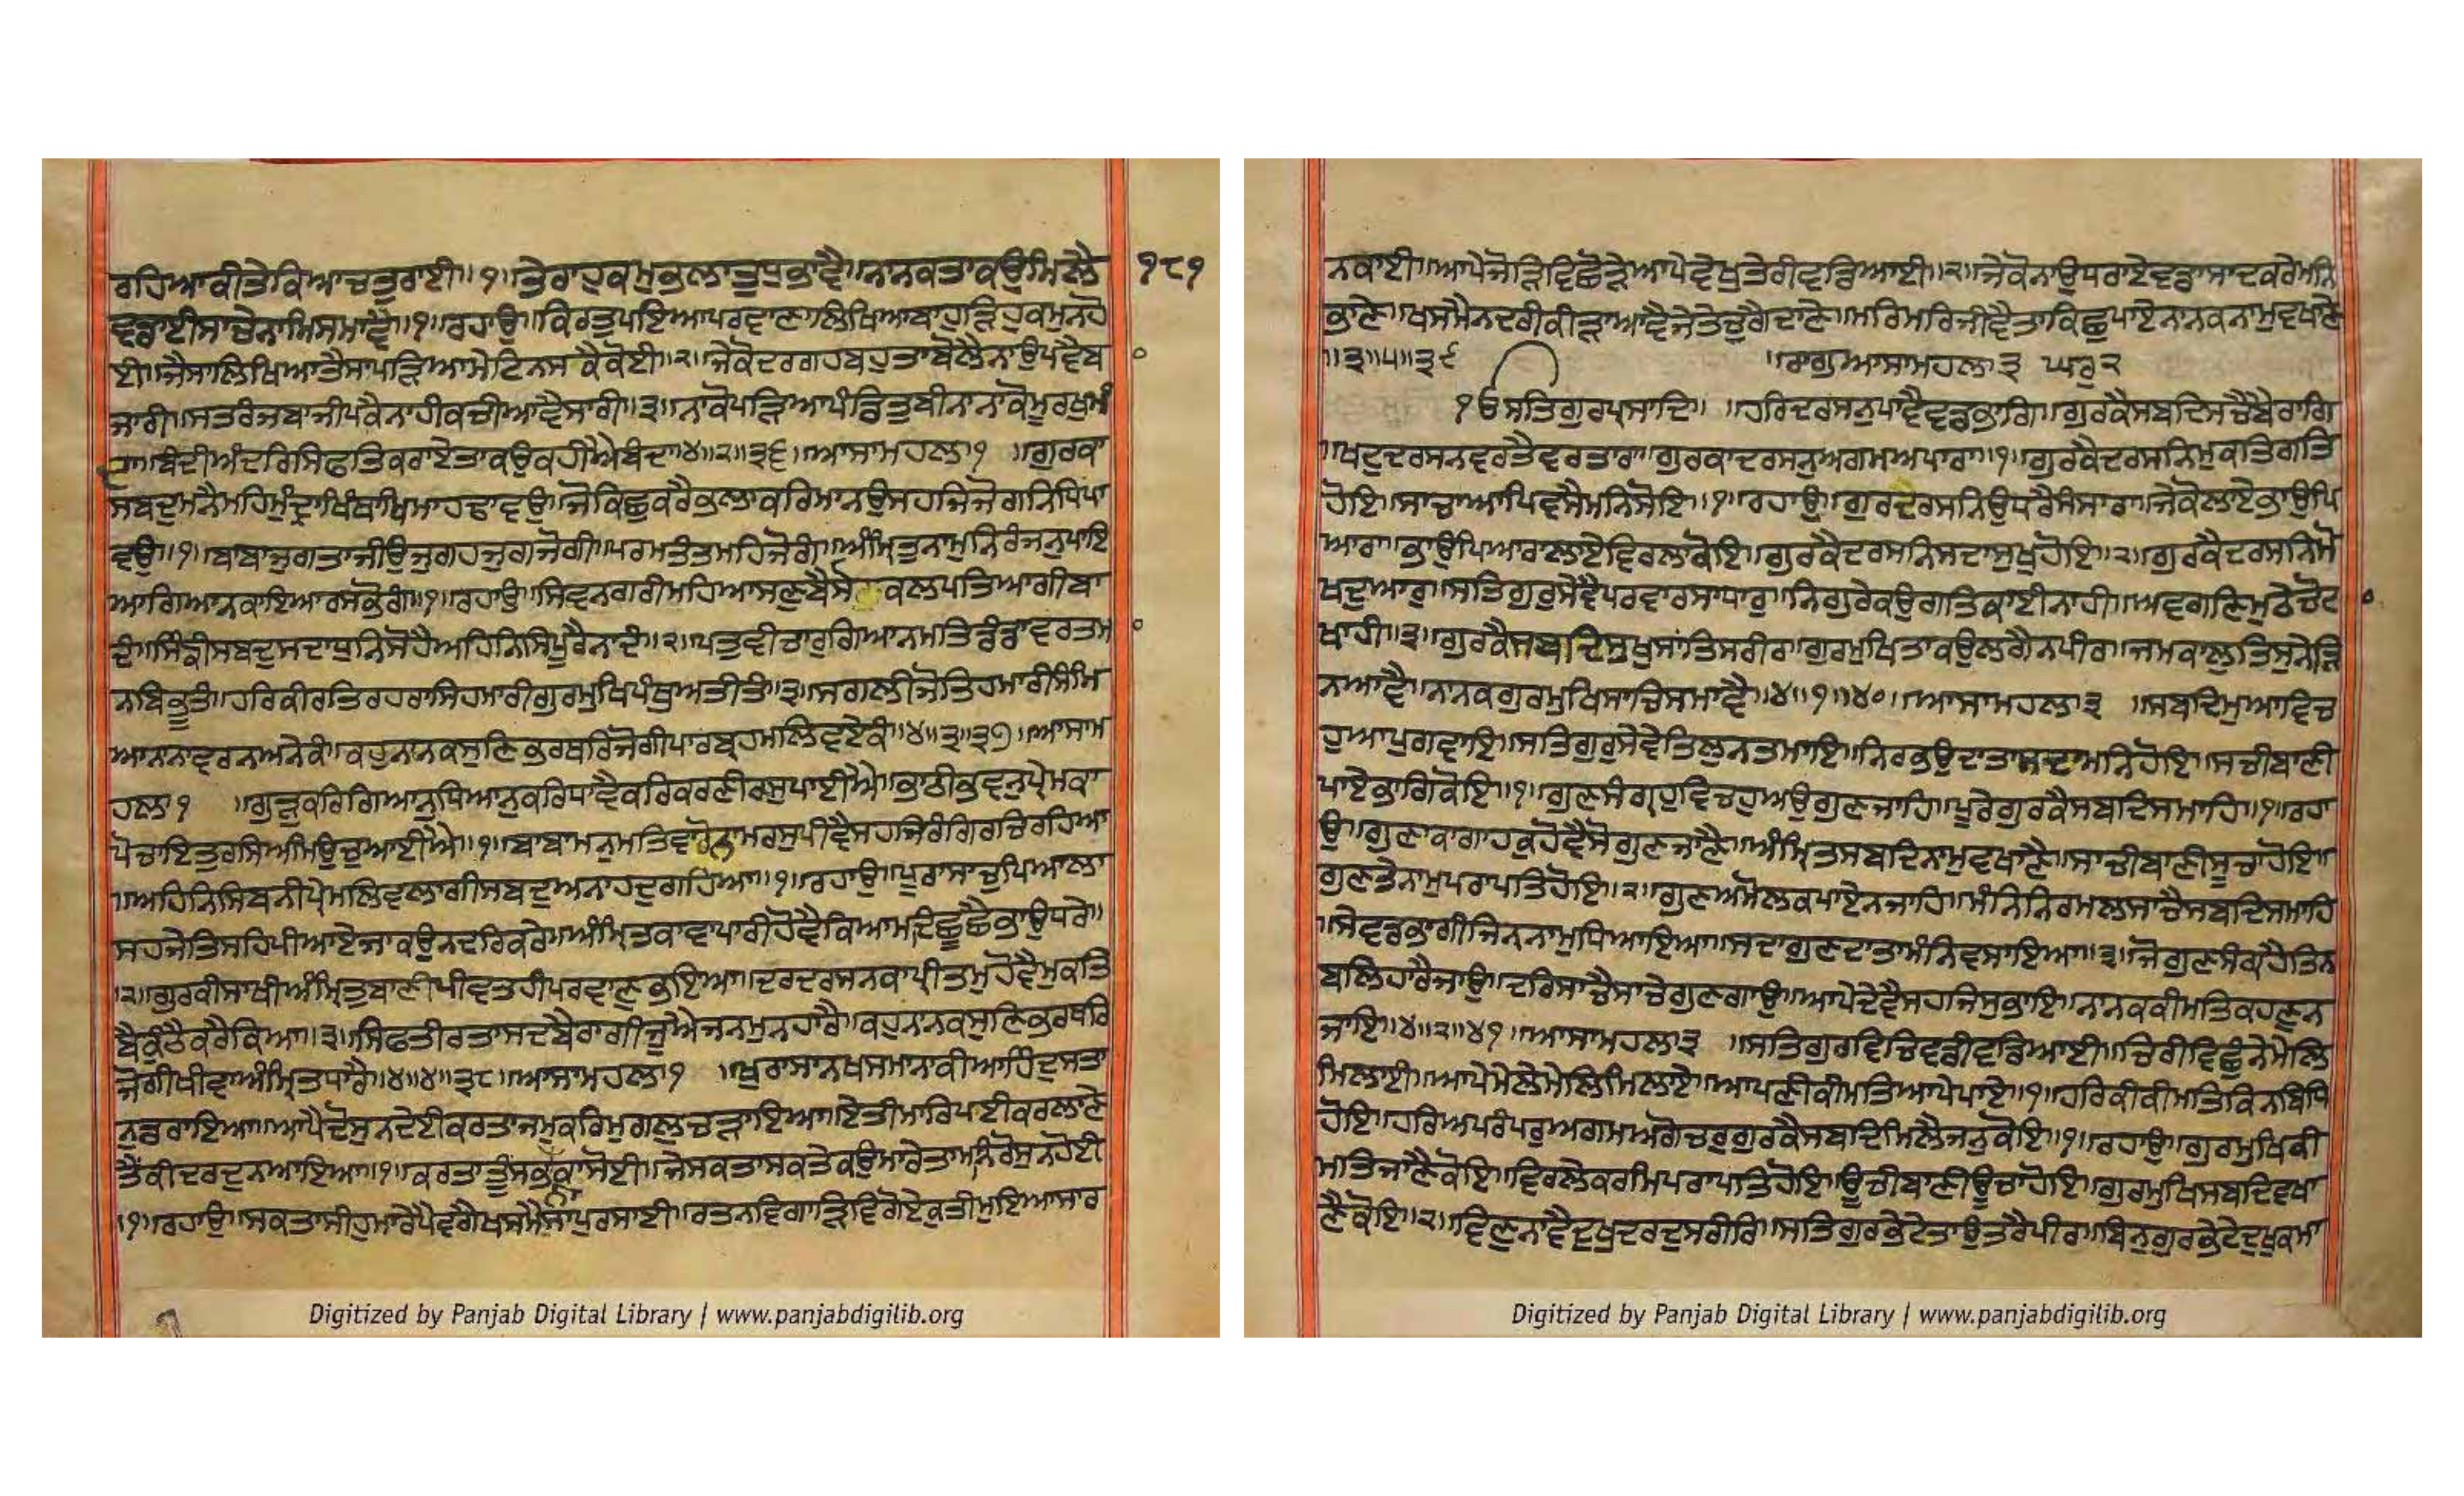 ਰਹਿਆਕੀਤੇਕਿਆਚਤੁਰਾਈ॥੧॥ਤੇਰਾਹੁਕਮੁਭਲਾਤੁਧੁਭਾਵੈ॥ਨਾਨਕਤਾਕਉਮਿਲੈ
੧੮੧
ਵਡਾਈਸਾਚੇਨਾਮਿਸਮਾਵੈ॥੧॥ਰਹਾਉ॥ਕਿਰਤੁਪਇਆਪਰਵਾਣਾਲਿਖਿਆਬਾਹੁੜਿਹੁਕਮੁਨਹੋ
ਈ॥ਜੈਸਾਲਿਖਿਆਤੈਸਾਪੜਿਆਮੇਟਿਨਸਕੈਕੋਈ॥੨॥ਜੇਕੋਦਰਗਹਬਹੁਤਾਬੋਲੈਨਾਉਪਵੈਬ
ਜਾਰੀ॥ਸਤਰੰਜਬਾਜੀਪਕੈਨਾਹੀਕਚੀਆਵੈਸਾਰੀ॥੩॥ਨਾਕੋਪੜਿਆਪੰਡਿਤੁਬੀਨਾਨਾਕੋਮੂਰਖੁਮੰ
ਦਾ॥ਬੰਦੀਅੰਦਰਿਸਿਫਤਿਕਰਾਏਤਾਕਉਕਹੀਐਬੰਦਾ॥੪॥੨॥੩੬॥ਆਸਾਮਹਲਾ੧ ॥ਗੁਰਕਾ
ਸਬਦੁਮਨੈਮਹਿਮੁੰਦ੍ਰਾਖਿੰਥਾਖਿਮਾਹਢਾਵਉ॥ਜੋਕਿਛੁਕਰੈਭਲਾਕਰਿਮਾਨਉਸਹਜਿਜੋਗਨਿਧਿਪਾ
ਵਉ॥੧॥ਬਾਬਾਜੁਗਤਾਜੀਉਜੁਗਹਜੁਗਜੋਗੀ॥ਪਰਮਤੰਤਮਹਿਜੋਗੰ॥ਅੰਮ੍ਰਿਤੁਨਾਮੁਨਿਰੰਜਨੁਪਾਇ
ਆਗਿਆਨਕਾਇਆਰਸਭੋਗੰ॥੧॥ਰਹਾਉ॥ਸਿਵਨਗਰੀਮਹਿਆਸਣੁਬੈਸੈ ਕਲਪਤਿਆਗੀਬਾ
ਦੰ॥ਸਿੰਙੀਸਬਦੁਸਦਾਧੁਨਿਸੋਹੈਅਹਿਨਿਸਿਪੂਰੈਨਾਦੰ॥੨॥ਪਤੁਵੀਚਾਰੁਗਿਆਨਮਤਿਡੰਡਾਵਰਤਮ
ਨਬਿਭੂਤੰ॥ਹਰਿਕੀਰਤਿਰਹਰਾਸਿਹਮਾਰੀਗੁਰਮੁਖਿਪੰਥੁਅਤੀਤੰ॥੩॥ਸਗਲੀਜੋਤਿਹਮਾਰੀਸੰਮਿ
ਆਨਾਨਾਵਰਨਅਨੇਕੰ॥ਕਹੁਨਾਨਕਸੁਣਿਭਰਥਰਿਜੋਗੀਪਾਰਬ੍ਰਹਮਲਿਵਏਕੰ॥੪॥੩॥੩੭॥ਆਸਾਮ
ਹਲਾ੧ ॥ਗੁੜੁਕਰਿਗਿਆਨੁਧਿਆਨੁਕਰਿਧਾਵੈਕਰਿਕਰਣੀਕਸੁਪਾਈਐ॥ਭਾਠੀਭਵਨੁਪ੍ਰੇਮਕਾ
ਪੋਚਾਇਤੁਰਸਿਅਮਿਉਚੁਆਈਐ॥੧॥ਬਾਬਾਮਨੁਮਤਿਵਾਰੋਨਾਮਰਸੁਪੀਵੈਸਹਜਿਰੰਗਿਰਚਿਰਹਿਆ
॥ਅਹਿਨਿਸਿਬਨੀਪ੍ਰੇਮਲਿਵਲਾਗੀਸਬਦੁਅਨਾਹਦੁਗਹਿਆ॥੧॥ਰਹਾਉ॥ਪੂਰਾਸਾਚੁਪਿਆਲਾ
ਸਹਜੇਤਿਸਹਿਪੀਆਏਜਾਕਉਨਦਰਿਕਰੇ॥ਅੰਮ੍ਰਿਤਕਾਵਾਪਾਰੀਹੋਵੈਕਿਆਮਦਿਛੂਛੈਭਾਉਧਰੇ॥
੨॥ਗੁਰਕੀਸਾਖੀਅੰਮ੍ਰਿਤੁਬਾਣੀਪੀਵਤਹੀਪਰਵਾਣੁਭਇਆ॥ਦਰਦਰਸਨਕਾਪ੍ਰੀਤਮੁਹੋਵੈਮੁਕਤਿ
ਬੈਕੁੰਠੈਕਰੈਕਿਆ॥੩॥ਸਿਫਤੀਰਤਾਸਦਬੈਰਾਗੀਜੂਐਜਨਮੁਨਹਾਰੈ॥ਕਹੁਨਾਨਕਸੁਣਿਭਰਥਰਿ
ਜੋਗੀਖੀਵਾਅੰਮ੍ਰਿਤਧਾਰੈ॥੪॥੪॥੩੮॥ਆਸਾਮਹਲਾ੧ ॥ਖੁਰਾਸਾਨਖਸਮਾਨਾਕੀਆਹਿੰਦੁਸਤਾ
ਨੁਡਰਾਇਆ॥ਆਪੈਦੋਸੁਨਦੇਈਕਰਤਾਜਮੁਕਰਿਮੁਗਲੁਚੜਾਇਆ॥ਏਤੀਮਾਰਪਈਕਰਲਾਣੇ
ਤੈਂਕੀਦਰਦੁਨਆਇਆ॥੧॥ਕਰਤਾਤੂੰਸਭਨਾਕਾਸੋਈ॥ਜੇਸਕਤਾਸਕਤੇਕਉਮਾਰੇਤਾਮਨਿਰੋਸੁਨਹੋਈ
॥੧॥ਰਹਾਉ॥ਸਕਤਾਸੀਹੁਮਾਰੇਪੈਵਗੈਖਸਮੈਸਾਪੁਰਸਾਈ॥ਰਤਨਵਿਗਾੜਿਵਿਗੋਏਕੁਤੀਮੁਇਆਸਾਰ
ਨਕਾਈ॥ਆਪੇਜੋੜਿਵਿਛੋੜੇਆਪੇਵੇਖੁਤੇਰੀਵਡਿਆਈ॥੨॥ਜੇਕੋਨਾਉਧਰਾਏਵਡਾਸਾਦਕਰੇਮਨਿ
ਭਾਣੇ॥ਖਸਮੈਨਦਰੀਕੀੜਾਆਵੈਜੇਤੇਚੁਗੈਦਾਣੇ॥ਮਰਿਮਰਿਜੀਵੈਤਾਕਿਛੁਪਾਏਨਾਨਕਨਾਮੁਵਖਾਣੇ
॥੩॥੫॥੩੯ ॥ਰਾਗੁਆਸਾਮਹਲਾ੩ ਘਰੁ੨
ੴਸਤਿਗੁਰਪ੍ਰਸਾਦਿ॥ ॥ਹਰਿਦਰਸਨੁਪਾਵੈਵਡਭਾਗਿ॥ਗੁਰਕੈਸਬਦਿਸਚੈਬੈਰਾਗਿ
॥ਖਟੁਦਰਸਨਵਰਤੈਵਰਤਾਰਾ॥ਗੁਰਕਾਦਰਸਨੁਅਗਮਅਪਾਰਾ॥੧॥ਗੁਰਕੈਦਰਸਨਿਮੁਕਤਿਗਤਿ
ਹੋਇ॥ਸਾਚਾਆਪਿਵਸੈਮਨਿਸੋਇ॥੧॥ਰਹਾਉ॥ਗੁਰਦਰਸਨਿਉਧਰੈਸੰਸਾਰਾ॥ਜੇਕੋਲਾਏਭਾਉਪਿ
ਆਰਾ॥ਭਾਉਪਿਆਰਾਲਾਏਵਿਰਲਾਕੋਇ॥ਗੁਰਕੈਦਰਸਨਿਸਦਾਸੁਖੁਹੋਇ॥੨॥ਗੁਰਕੈਦਰਸਨਿਮੋ
ਖਦੁਆਰੁ॥ਸਤਿਗੁਰੁਸੇਵੈਪਰਵਾਰਸਾਧਾਰੁ॥ਨਿਗੁਰੇਕਉਗਤਿਕਾਈਨਾਹੀ॥ਅਵਗਣਿਮੁਠੇਚੋਟ
ਖਾਹੀ॥੩॥ਗੁਰਕੈਸਬਦਿਸੁਖੁਸਾਂਤਿਸਰੀਰ॥ਗੁਰਮੁਖਿਤਾਕਉਲਗੈਨਪੀਰ॥ਜਮਕਾਲੁਤਿਸੁਨੇੜਿ
ਨਆਵੈ॥ਨਾਨਕਗੁਰਮੁਖਿਸਾਚਿਸਮਾਵੈ॥੪॥੧॥੪੦॥ਆਸਾਮਹਲਾ੩ ॥ਸਬਦਿਮੁਆਵਿਚ
ਹੁਆਪੁਗਵਾਇ॥ਸਤਿਗੁਰੁਸੇਵੇਤਿਲੁਨਤਮਾਇ॥ਨਿਰਭਉਦਾਤਾਸਦਾਮਨਿਹੋਇ॥ਸਚੀਬਾਣੀ
ਪਾਏਭਾਗਿਕੋਇ॥੧॥ਗੁਣਸੰਗ੍ਰਹੁਵਿਚਹੁਅਉਗੁਣਜਾਹਿ॥ਪੂਰੇਗੁਰਕੈਸਬਦਿਸਮਾਹਿ॥੧॥ਰਹਾ
ਉ॥ਗੁਣਾਕਾਗਾਹਕੁਹੋਵੈਸੋਗੁਣਜਾਣੈ॥ਅੰਮ੍ਰਿਤਸਬਦਿਨਾਮੁਵਖਾਣੈ॥ਸਾਚੀਬਾਣੀਸੂਚਾਹੋਇ॥
ਗੁਣਤੇਨਾਮੁਪਰਾਪਤਿਹੋਇ॥੨॥ਗੁਣਅਮੋਲਕਪਾਏਨਜਾਹਿ॥ਮੰਨਿਨਿਰਮਲਸਾਚੈਸਬਦਿਸਮਾਹਿ
॥ਸੇਵਡਭਾਗੀਜਿਨ੍ਹਨਾਮੁਧਿਆਇਆ॥ਸਦਾਗੁਣਦਾਤਾਮੰਨਿਵਸਾਇਆ॥੩॥ਜੋਗੁਣਸੰਗ੍ਰਹੈਤਿਨ
ਬਲਿਹਾਰੈਜਾਉ॥ਦਰਿਸਾਚੈਸਾਚੇਗੁਣਗਾਉ॥ਆਪੇਦੇਵੈਸਹਜਿਸੁਭਾਇ॥ਨਾਨਕਕੀਮਤਿਕਹਣੁਨ
ਜਾਇ॥੪॥੨॥੪੧॥ਆਸਾਮਹਲਾ੩ ॥ਸਤਿਗੁਰਵਿਚਿਵਡੀਵਡਿਆਈ॥ਚਿਰੀਵਿਛੁੰਨੇਮੇਲਿ
ਮਿਲਾਈ॥ਆਪੇਮੇਲੇਮੇਲਿਮਿਲਾਏ॥ਆਪਣੀਕੀਮਤਿਆਪੇਪਾਏ॥੧॥ਹਰਿਕੀਕੀਮਤਿਕਿਨਬਿਧਿ
ਹੋਇ॥ਹਰਿਅਪਰੰਪਰੁਅਗਮਅਗੋਚਰੁਗੁਰਕੈਸਬਦਿਮਿਲੈਜਨੁਕੋਇ॥੧॥ਰਹਾਉ॥ਗੁਰਮੁਖਿਕੀ
ਮਤਿਜਾਣੈਕੋਇ॥ਵਿਰਲੇਕਰਮਿਪਰਾਪਤਿਹੋਇ॥ਊਚੀਬਾਣੀਊਚਾਹੋਇ॥ਗੁਰਮੁਖਿਸਬਦਿਵਖਾ
ਣੈਕੋਇ॥੨॥ਵਿਣੁਨਾਵੈਦੁਖੁਦਰਦੁਸਰੀਰਿ॥ਸਤਿਗੁਰਭੇਟੇਤਾਉਤਰੈਪੀਰ॥ਬਿਨੁਗੁਰਭੇਟੇਦੁਖੁਕਮਾ
Digitized by Panjab Digital Library | www.panjabdigilib.org
Digitized by Panjab Digital Library | www.panjabdigilib.org